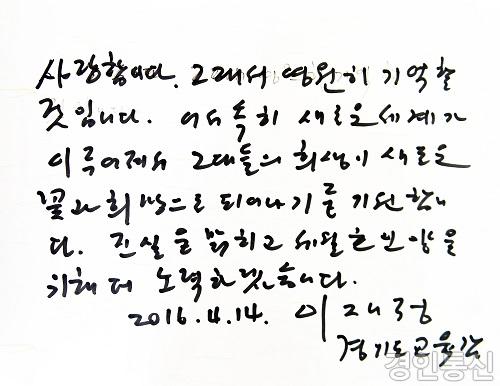 사랑합니다. 그대여 영원히 기억할
것입니다. 어서 속히 새로운 세계가
이룩어져서 그대들의 희생이 새로운
꽃과 희망으로 되어나기를 기원합니
다. 진실을 밝히고 세월호 인양을
위해 더 노력하겠습니다.
2016.4.14. 이재정
경기도교육감
경인통신